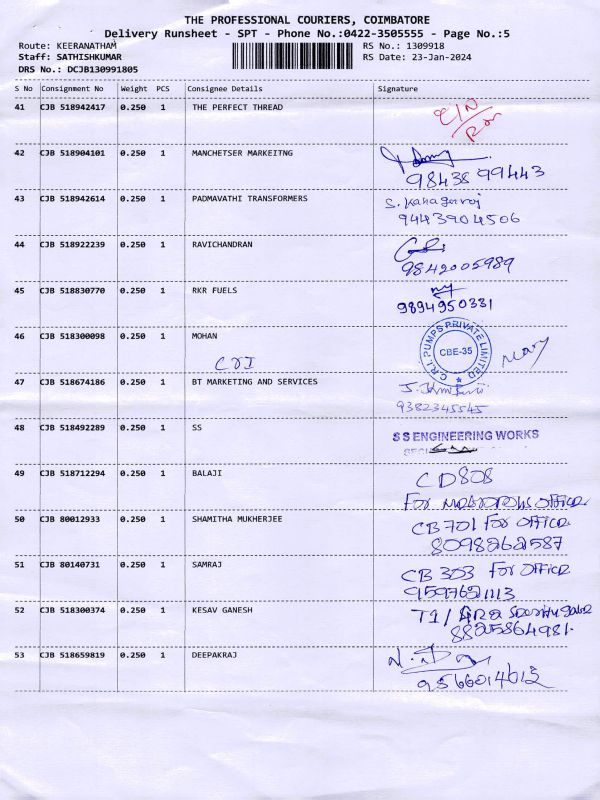 THE PROFESSIONAL COURIERS, COIMBATORE
Delivery Runsheet - SPT - Phone No.:0422-3505555 - Page No.:5
Route: KEERANATHAM RS No.: 1309918
Staff: SATHISHKUMAR RS Date: 23-Jan-2024
DRS No.: DCJB130991805
S No Consignment No Weight PCS Consignee Details Signature
41 CJB 518942417 0.250 1 THE PERFECT THREAD
42 CJB 518904101 0.250 1 MANCHETSER MARKEITNG
98438 99443
43 CJB 518942614 0.250 1 PADMAVATHI TRANSFORMERS S. Kanagaraj
9443904506
44 CJB 518922239 0.250 1 RAVICHANDRAN
9842005989
45 CJB 518830770 0.250 1 RKR FUELS
9894950331
46 CJB 518300098 0.250 1 MOHAN
CRI
C.R.I. PUMPS PRIVATE LIMITED
CBE-35
47 CJB 518674186 0.250 1 BT MARKETING AND SERVICES
9382345545
48 CJB 518492289 0.250 1 SS S S ENGINEERING WORKS
49 CJB 518712294 0.250 1 BALAJI CD808
For OFFICE
50 CJB 80012933 0.250 1 SHAMITHA MUKHERJEE CB701 For OFFICE
8098262587
51 CJB 80140731 0.250 1 SAMRAJ CB 303 For OFFICE
9597621113
52 CJB 518300374 0.250 1 KESAV GANESH T1/
8825864981.
53 CJB 518659819 0.250 1 DEEPAKRAJ
9566014612